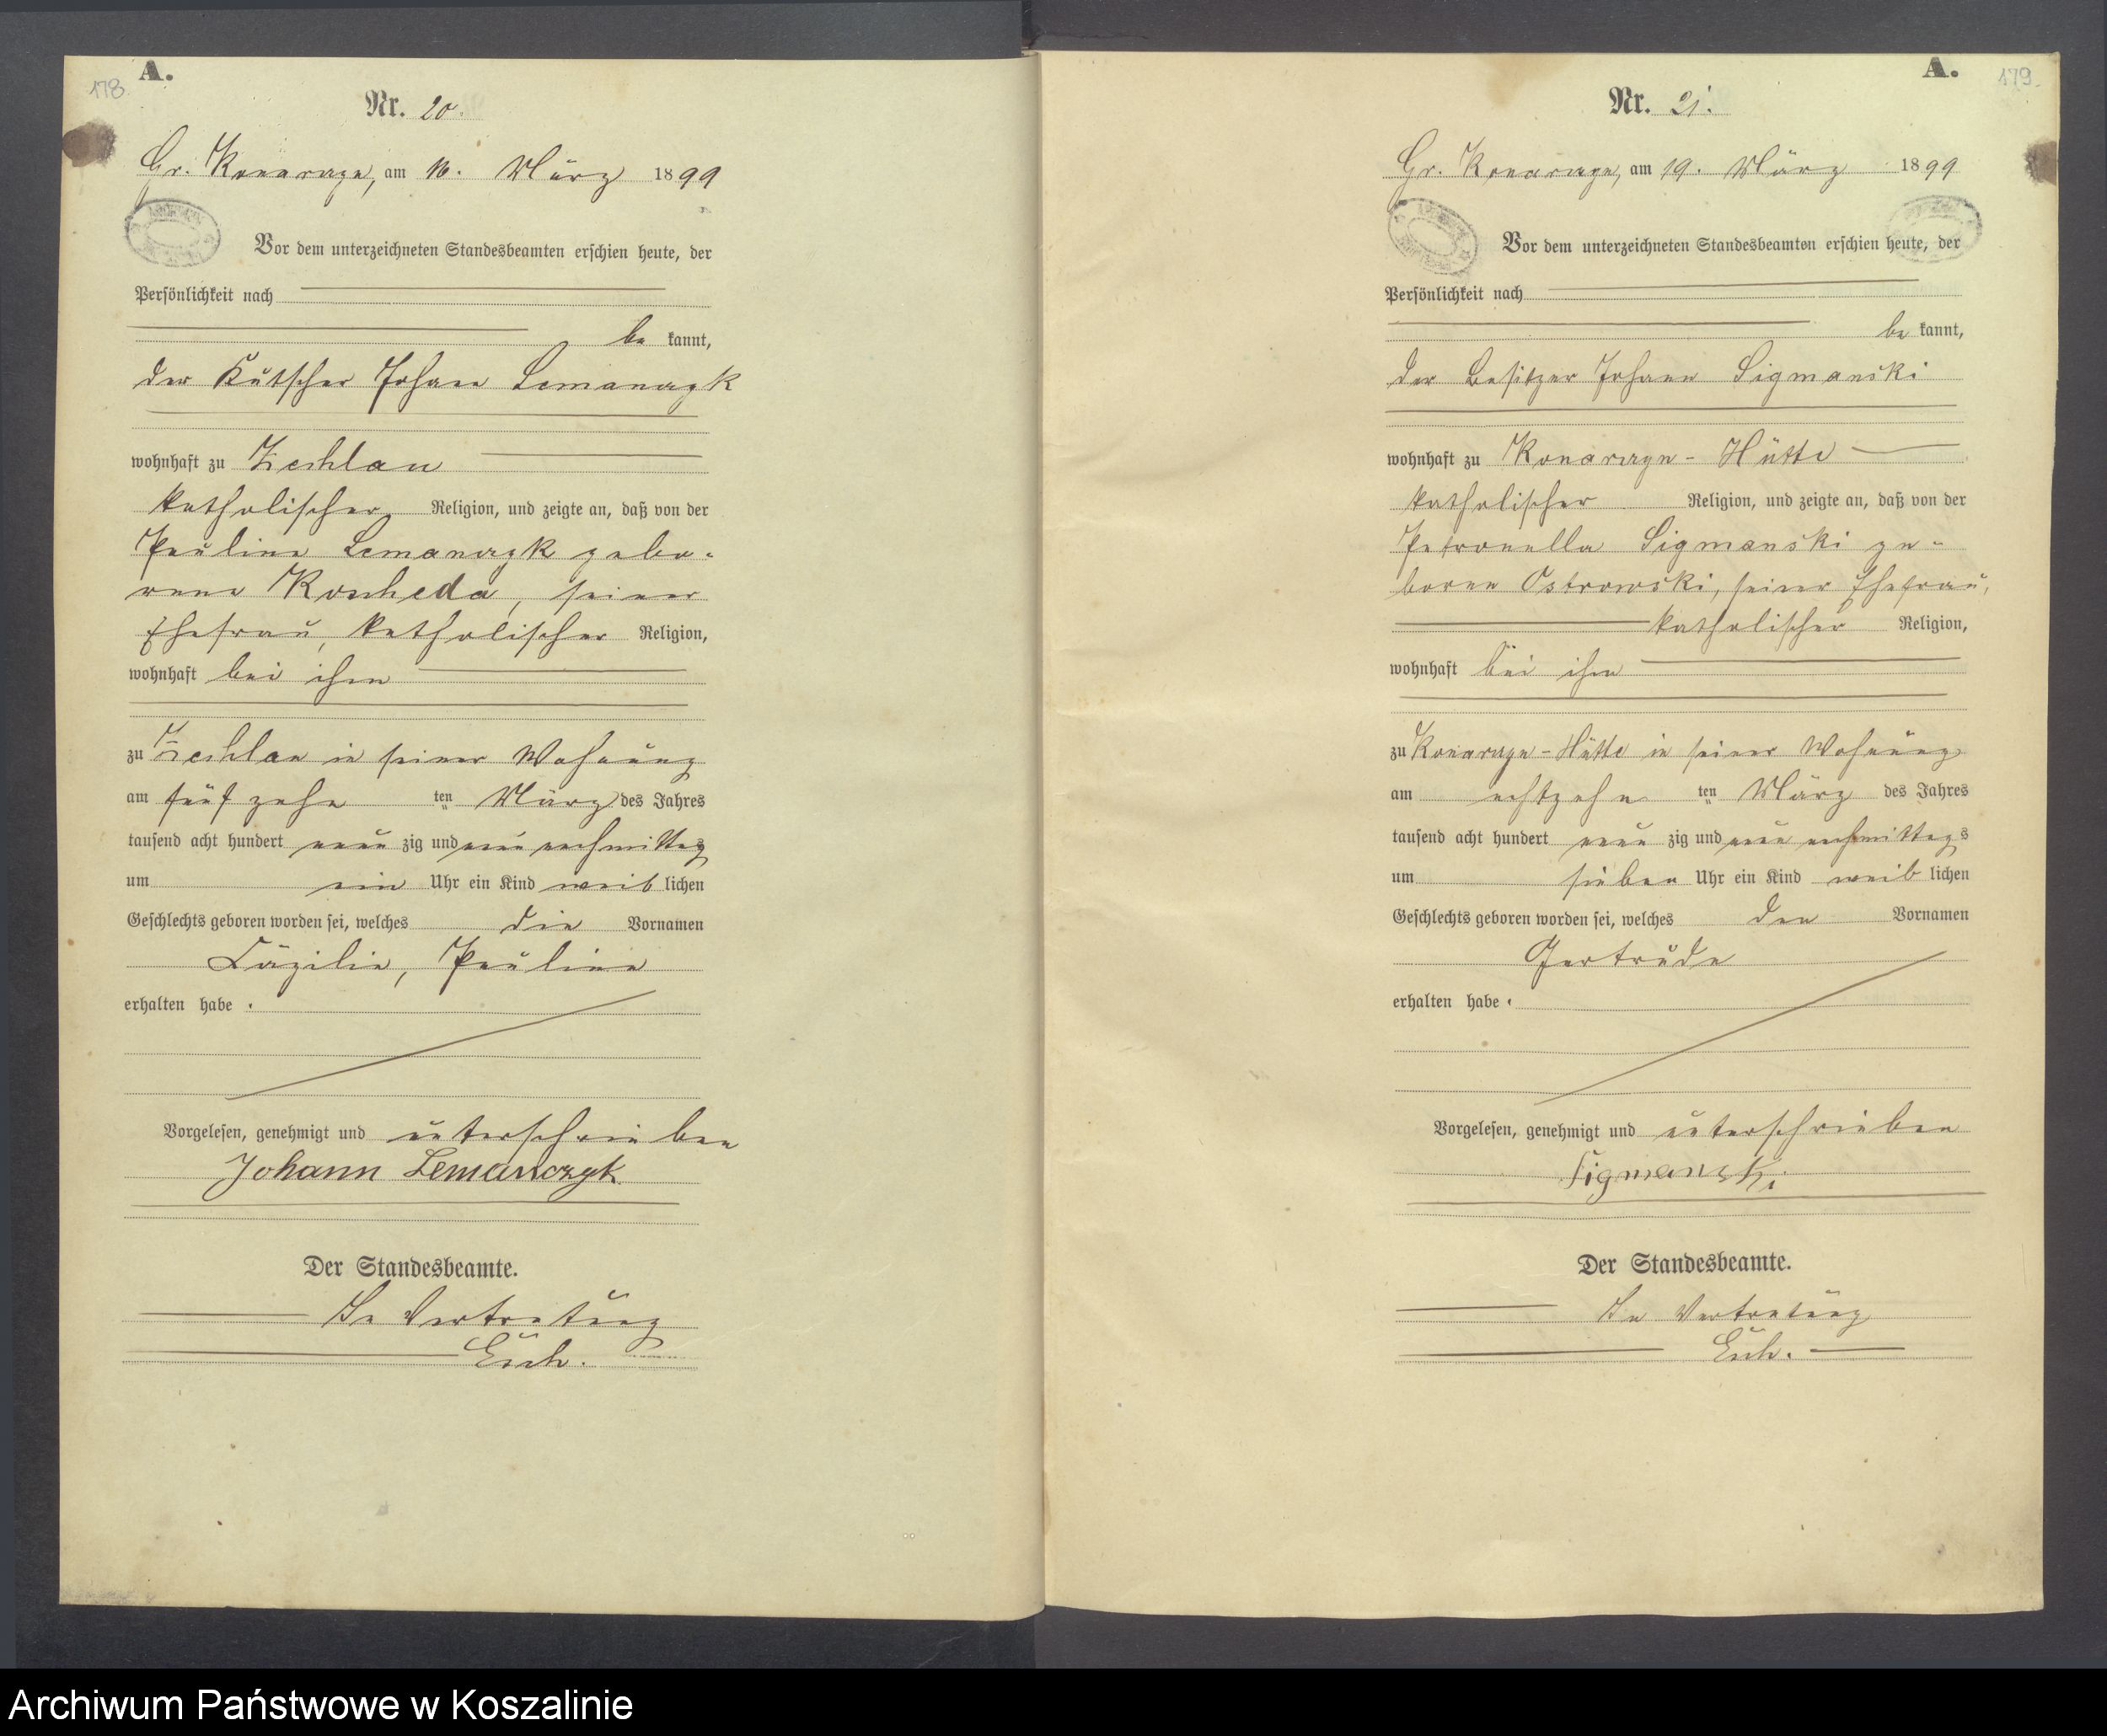 178.
A.
Nr. 20.
Gr. Konarczyn, am 16. März 1899
Vor dem unterzeichneten Standesbeamten erschien heute, der
Persönlichkeit nach
be kannt,
der Kutscher Johann Lemanczyk
wohnhaft zu Zechlau
katholischer Religion, und zeigte an, daß von der
Pauline Lemanczyk gebo-
rene Koscheda, seiner
Ehefrau, katholischer Religion,
wohnhaft bei ihm
zu Zechlau in seiner Wohnung
am fünfzehn ten März des Jahres
tausend acht hundert neun zig und neun nachmittag
um ein Uhr ein Kind weib lichen
Geschlechts geboren worden sei, welches die Vornamen
Cäzilie, Pauline
erhalten habe.
Vorgelesen, genehmigt und unterschrieben
Johann Lemanczyk
Der Standesbeamte.
In Vertretung
A.
179.
Nr. 21.
Gr. Konarczyn, am 19. März 1899
Vor dem unterzeichneten Standesbeamten erschien heute, der
Persönlichkeit nach
be kannt,
der Besitzer Johann Sigmanski
wohnhaft zu Konarczyn-Hütte
katholischer Religion, und zeigte an, daß von der
Petronella Sigmanski ge-
borne Ostrowski, seiner Ehefrau,
katholischer Religion,
wohnhaft bei ihm
zu Konarczyn-Hütte in seiner Wohnung
am achtzehn ten März des Jahres
tausend acht hundert neun zig und neun nachmittags
um sieben Uhr ein Kind weib lichen
Geschlechts geboren worden sei, welches den Vornamen
Gertrude
erhalten habe.
Vorgelesen, genehmigt und unterschrieben
Sigmanski
Der Standesbeamte.
In Vertretung
Archiwum Państwowe w Koszalinie